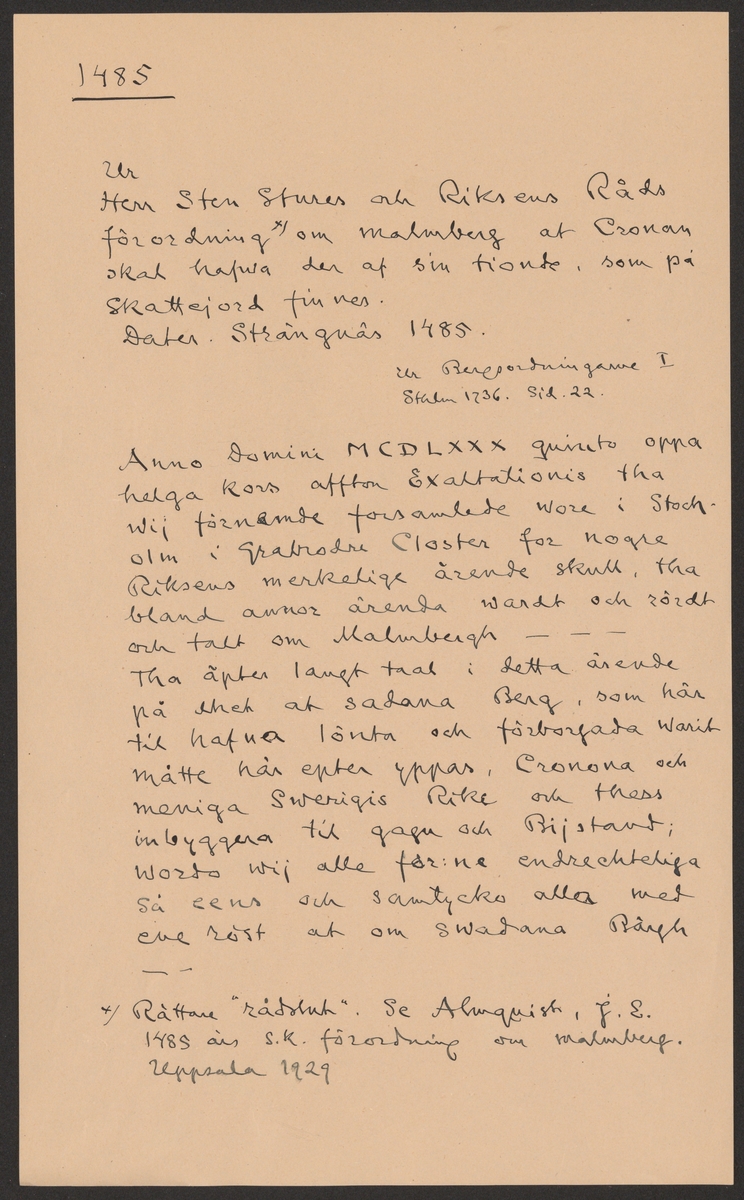 1485
Ur
Herr Sten Stures och Riksens Råds
förordning x) om malmberg at Cronan
skal hafwa der af sin tionde, som på
Skattejord finnes.
Dater. Strängnäs 1485.
Ur Bergsordningarne I
Sthlm 1736. Sid. 22.
Anno Domini MCDLXXX quinto oppa
helga Kors affton Exaltationis tha
wij förnämde forsamlede wore i Stock-
olm i Grabrodre Closter for nogre
Riksens merkelige ärende skull, tha
bland annor ärenda wardt och rördt
och talt om Malmbergh — — —
Tha äpter langt taal i detta ärende
på thet at sadana Berg, som här
til hafwa lönta och förborgada warit
måtte här epter yppas, Cronona och
meniga Swerigis Rike och thess
inbyggera til gagn och Bijstand;
wordo wij alle for:ne endrechteliga
så eens och samtycko alla med
ene röst at om swadana Bärgh
— —
x) Rättare "rådslut". Se Almquist, J. E.
1485 års s.k. förordning om malmberg.
Uppsala 1929